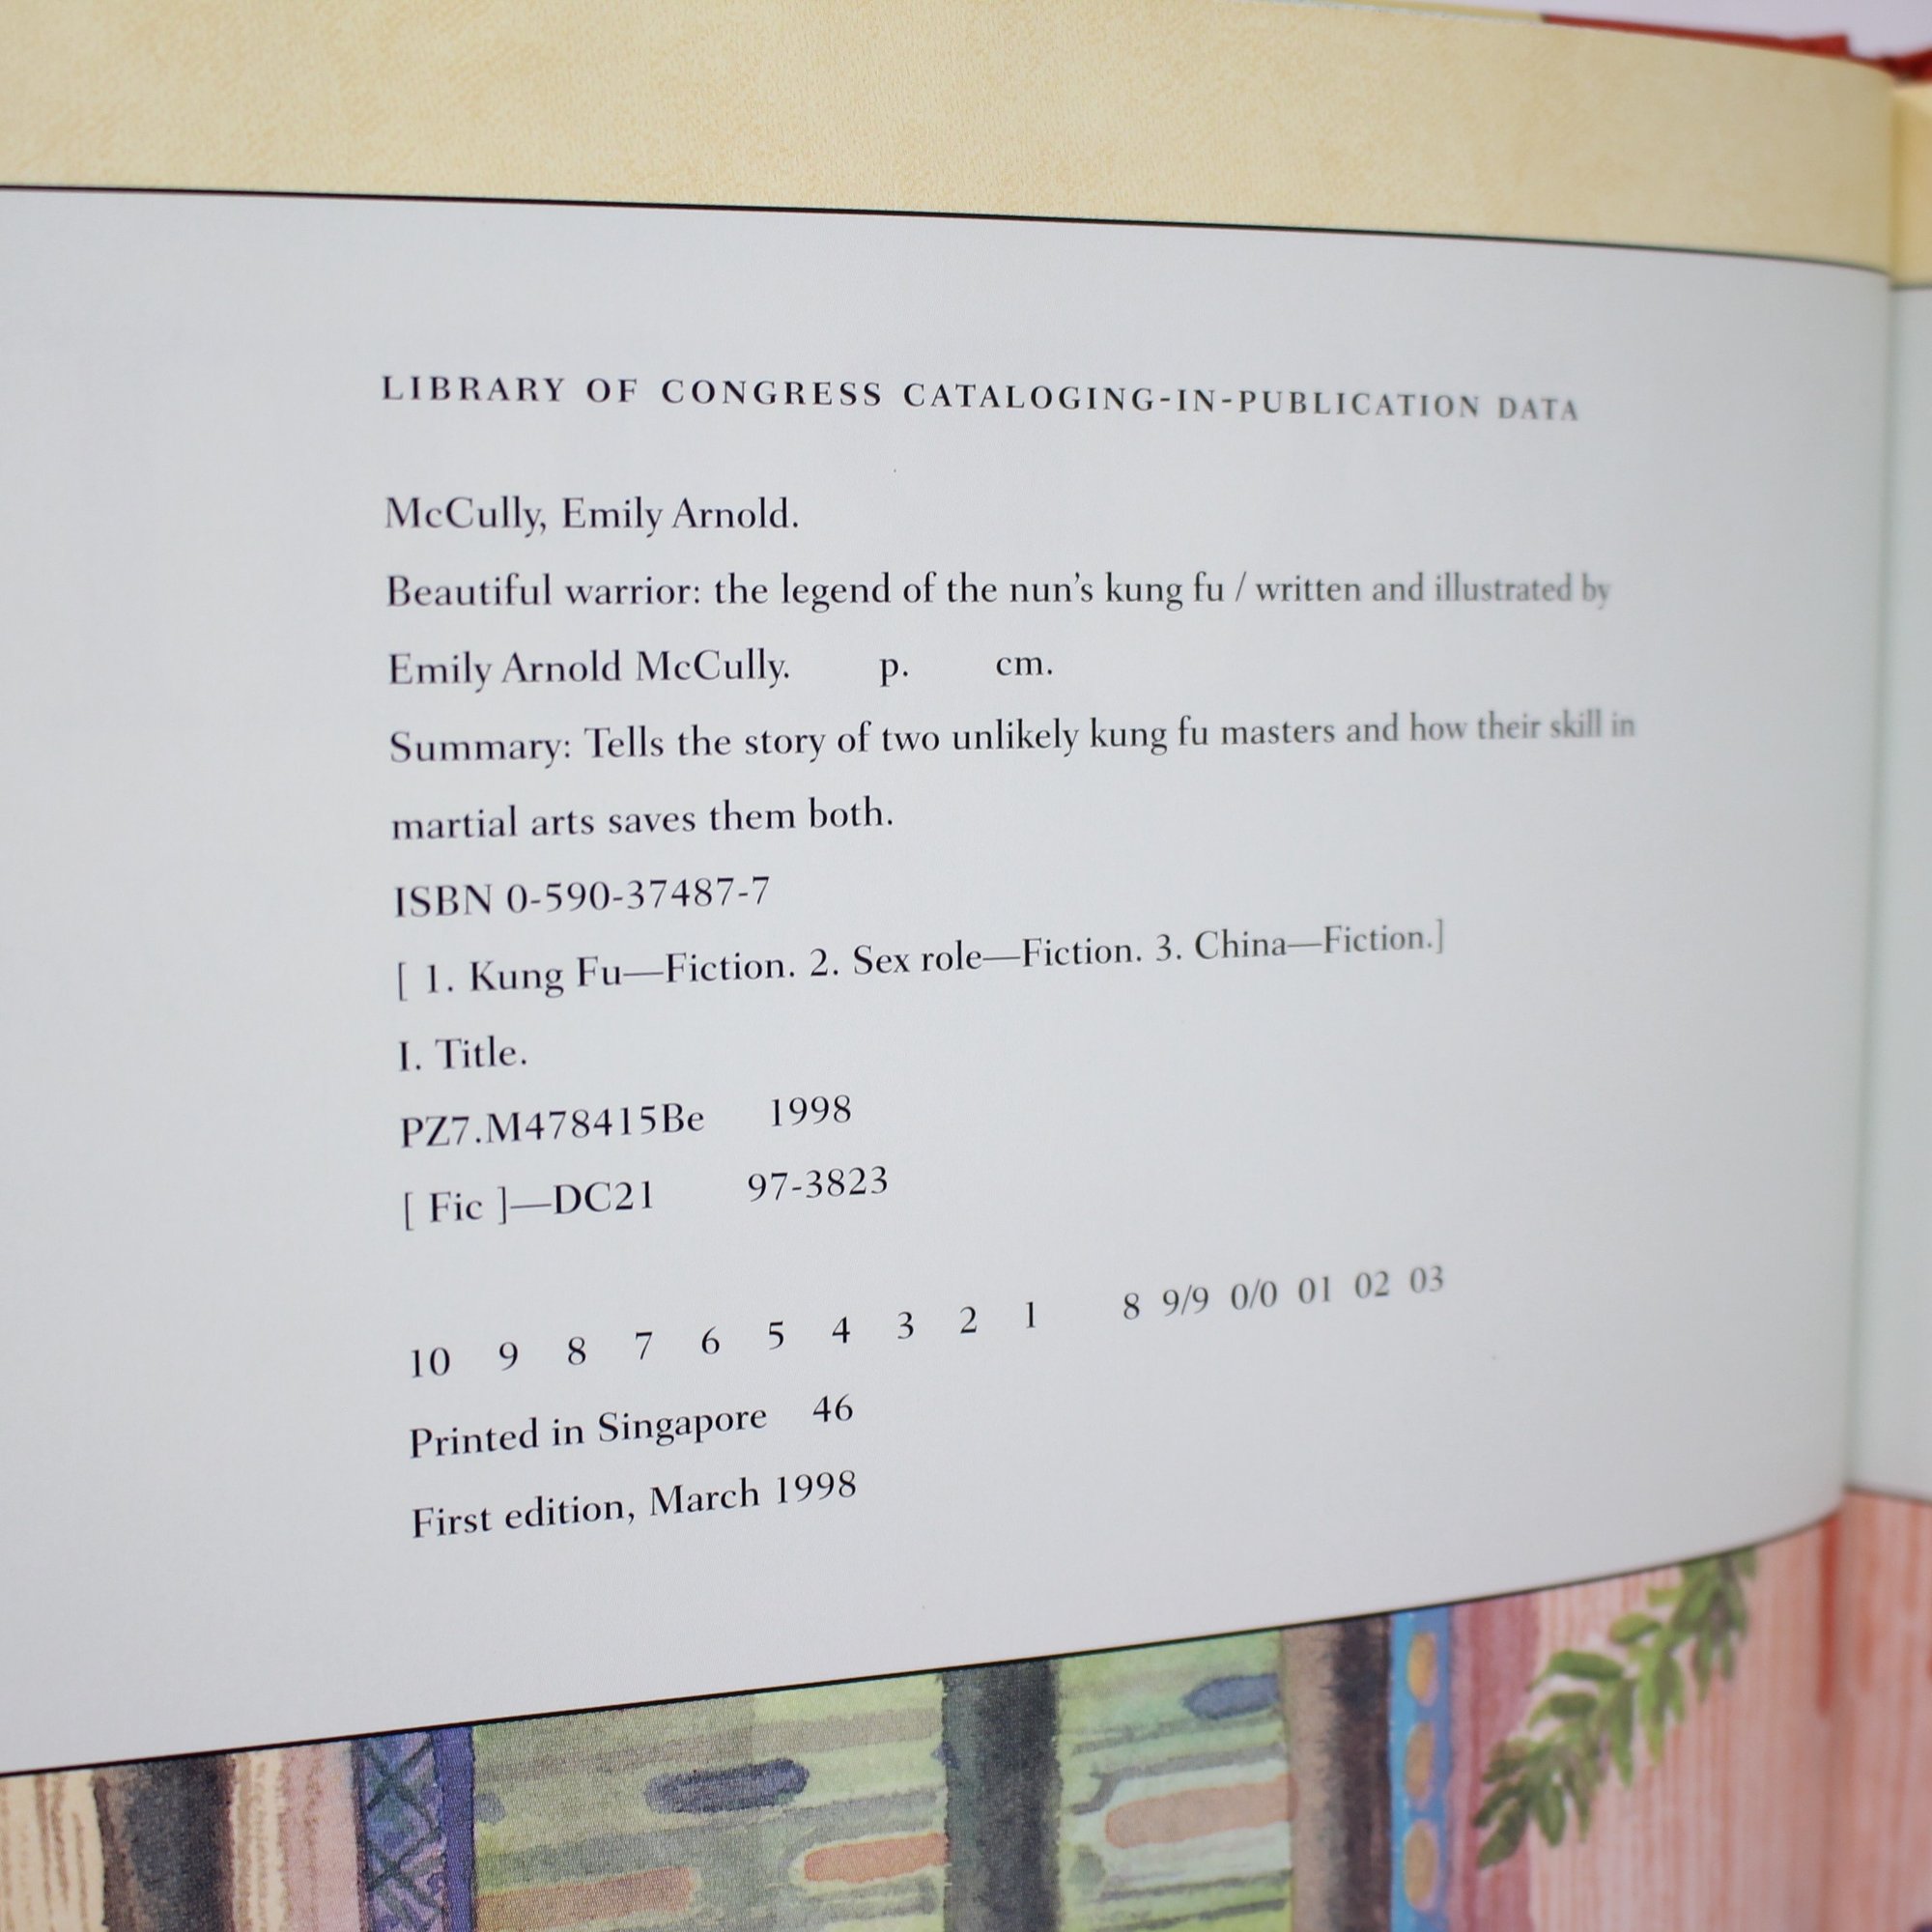 LIBRARY OF CONGRESS CATALOGING-IN-PUBLICATION DATA
McCully, Emily Arnold.
Beautiful warrior: the legend of the nun's kung fu / written and illustrated by
Emily Arnold McCully. p. cm.
Summary: Tells the story of two unlikely kung fu masters and how their skill in
martial arts saves them both.
ISBN 0-590-37487-7
[ 1. Kung Fu—Fiction. 2. Sex role—Fiction. 3. China—Fiction.]
I. Title.
PZ7.M478415Be 1998
[ Fic ]—DC21 97-3823
10 9 8 7 6 5 4 3 2 1 8 9/9 0/0 01 02 03
Printed in Singapore 46
First edition, March 1998